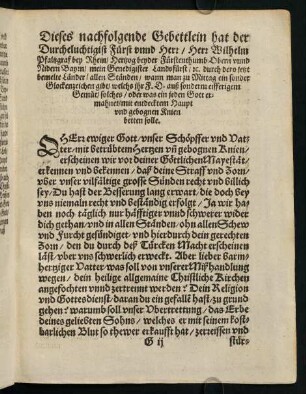 Dieses nachfolgende Gebettlein hat der
Durcheluchtigist Fürst vnnd Herr / Herr Wilhelm
Pfaltzgraf bey Rhein / Hertzog beyder Fürstenthumb Obern vnnd
Nidern Bayrn / mein Genedigister Landsfürst / ꝛc. durch dero yetzt
bemelte Länder / allen Ständen / wann man zu Mittag ein sonder
Glockenzeichen gibt / welchs ihr F. D. auß sonderm eifferigem
Gemüt solches / oder was ein jeden Gott er-
mahnet / mit endecktem Haupt
vnd gebognen Knien
betten solle.
OHErr ewiger Gott / vnser Schöpffer vnd Vat-
ter / mit betrübtem Hertzen vñ gebognen Knien /
erscheinen wir vor deiner Göttlichen Mayestät /
erkennen vnd bekennen / daß deine Straff vnd Zorn /
vber vnser vilfältige grosse Sünden recht vnd billich
sey / Du hast der Besserung lang erwart / die doch bey
vns niemaln recht vnd beständig erfolgt / Ja wir ha-
ben noch täglich nur häfftiger vnnd schwerer wider
dich gethan / vnd in allen Ständen / ohn allen Schew
vnd Furcht gesündiget / vnd hierdurch dein gerechten
Zorn / den du durch deß Türcken Macht erscheinen
läst / vber vns schwerlich erweckt. Aber lieber Barm-
hertziger Vatter / was soll von vnserer Mißhandlung
wegen / dein heilige allgemaine Christliche Kirchen
angefochten vnnd zertrennt werden? Dein Religion
vnd Gottesdienst / daran du ein gefallē hast / zu grund
gehen? warumb soll vnser Vbertrettung / das Erbe
deines geliebsten Sohns / welches er mit seinem kost-
barlichen Blut so thewer erkaufft hat / zerreissen vnd
G ij stür-